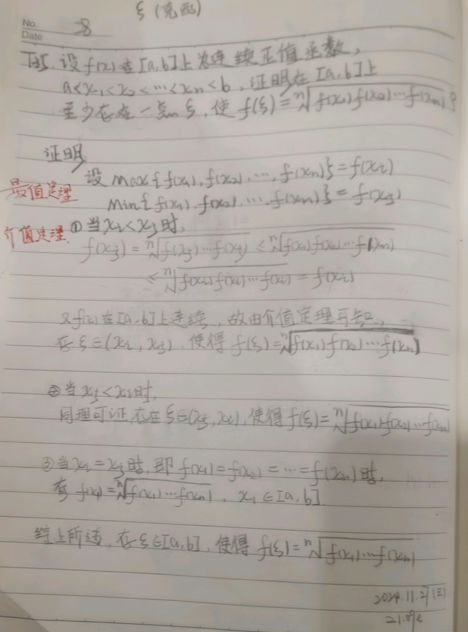 ξ (克西)
No.
Date 8
T35 设f(x)在[a,b]上为连续正值函数,
a<x₁<x₂<…<xₙ<b,证明在[a,b]上
至少存在一点ξ,使f(ξ)=ⁿ√f(x₁)f(x₂)…f(xₙ).
证明
设max{f(x₁),f(x₂),…,f(xₙ)}=f(xᵢ)
最值定理 min{f(x₁),f(x₂),…,f(xₙ)}=f(xⱼ)
介值定理 ①当xᵢ<xⱼ时,
f(xⱼ)=ⁿ√f(xⱼ)…f(xⱼ) <ⁿ√f(x₁)f(x₂)…f(xₙ)
<ⁿ√f(xᵢ)f(xᵢ)…f(xᵢ) = f(xᵢ)
又f(x)在[a,b]上连续,故由介值定理可知,
存在ξ∈(xᵢ,xⱼ),使得f(ξ)=ⁿ√f(x₁)f(x₂)…f(xₙ)
②当xⱼ<xᵢ时,
同理可证,存在ξ∈(xⱼ,xᵢ),使得f(ξ)=ⁿ√f(x₁)f(x₂)…f(xₙ)
③当xᵢ=xⱼ时,即f(x₁)=f(x₂)=…=f(xₙ)时,
有f(x₁)=ⁿ√f(x₁)…f(xₙ),x₁∈[a,b]
综上所述,存在ξ∈[a,b],使得f(ξ)=ⁿ√f(x₁)…f(xₙ)
2024.11.27(三)